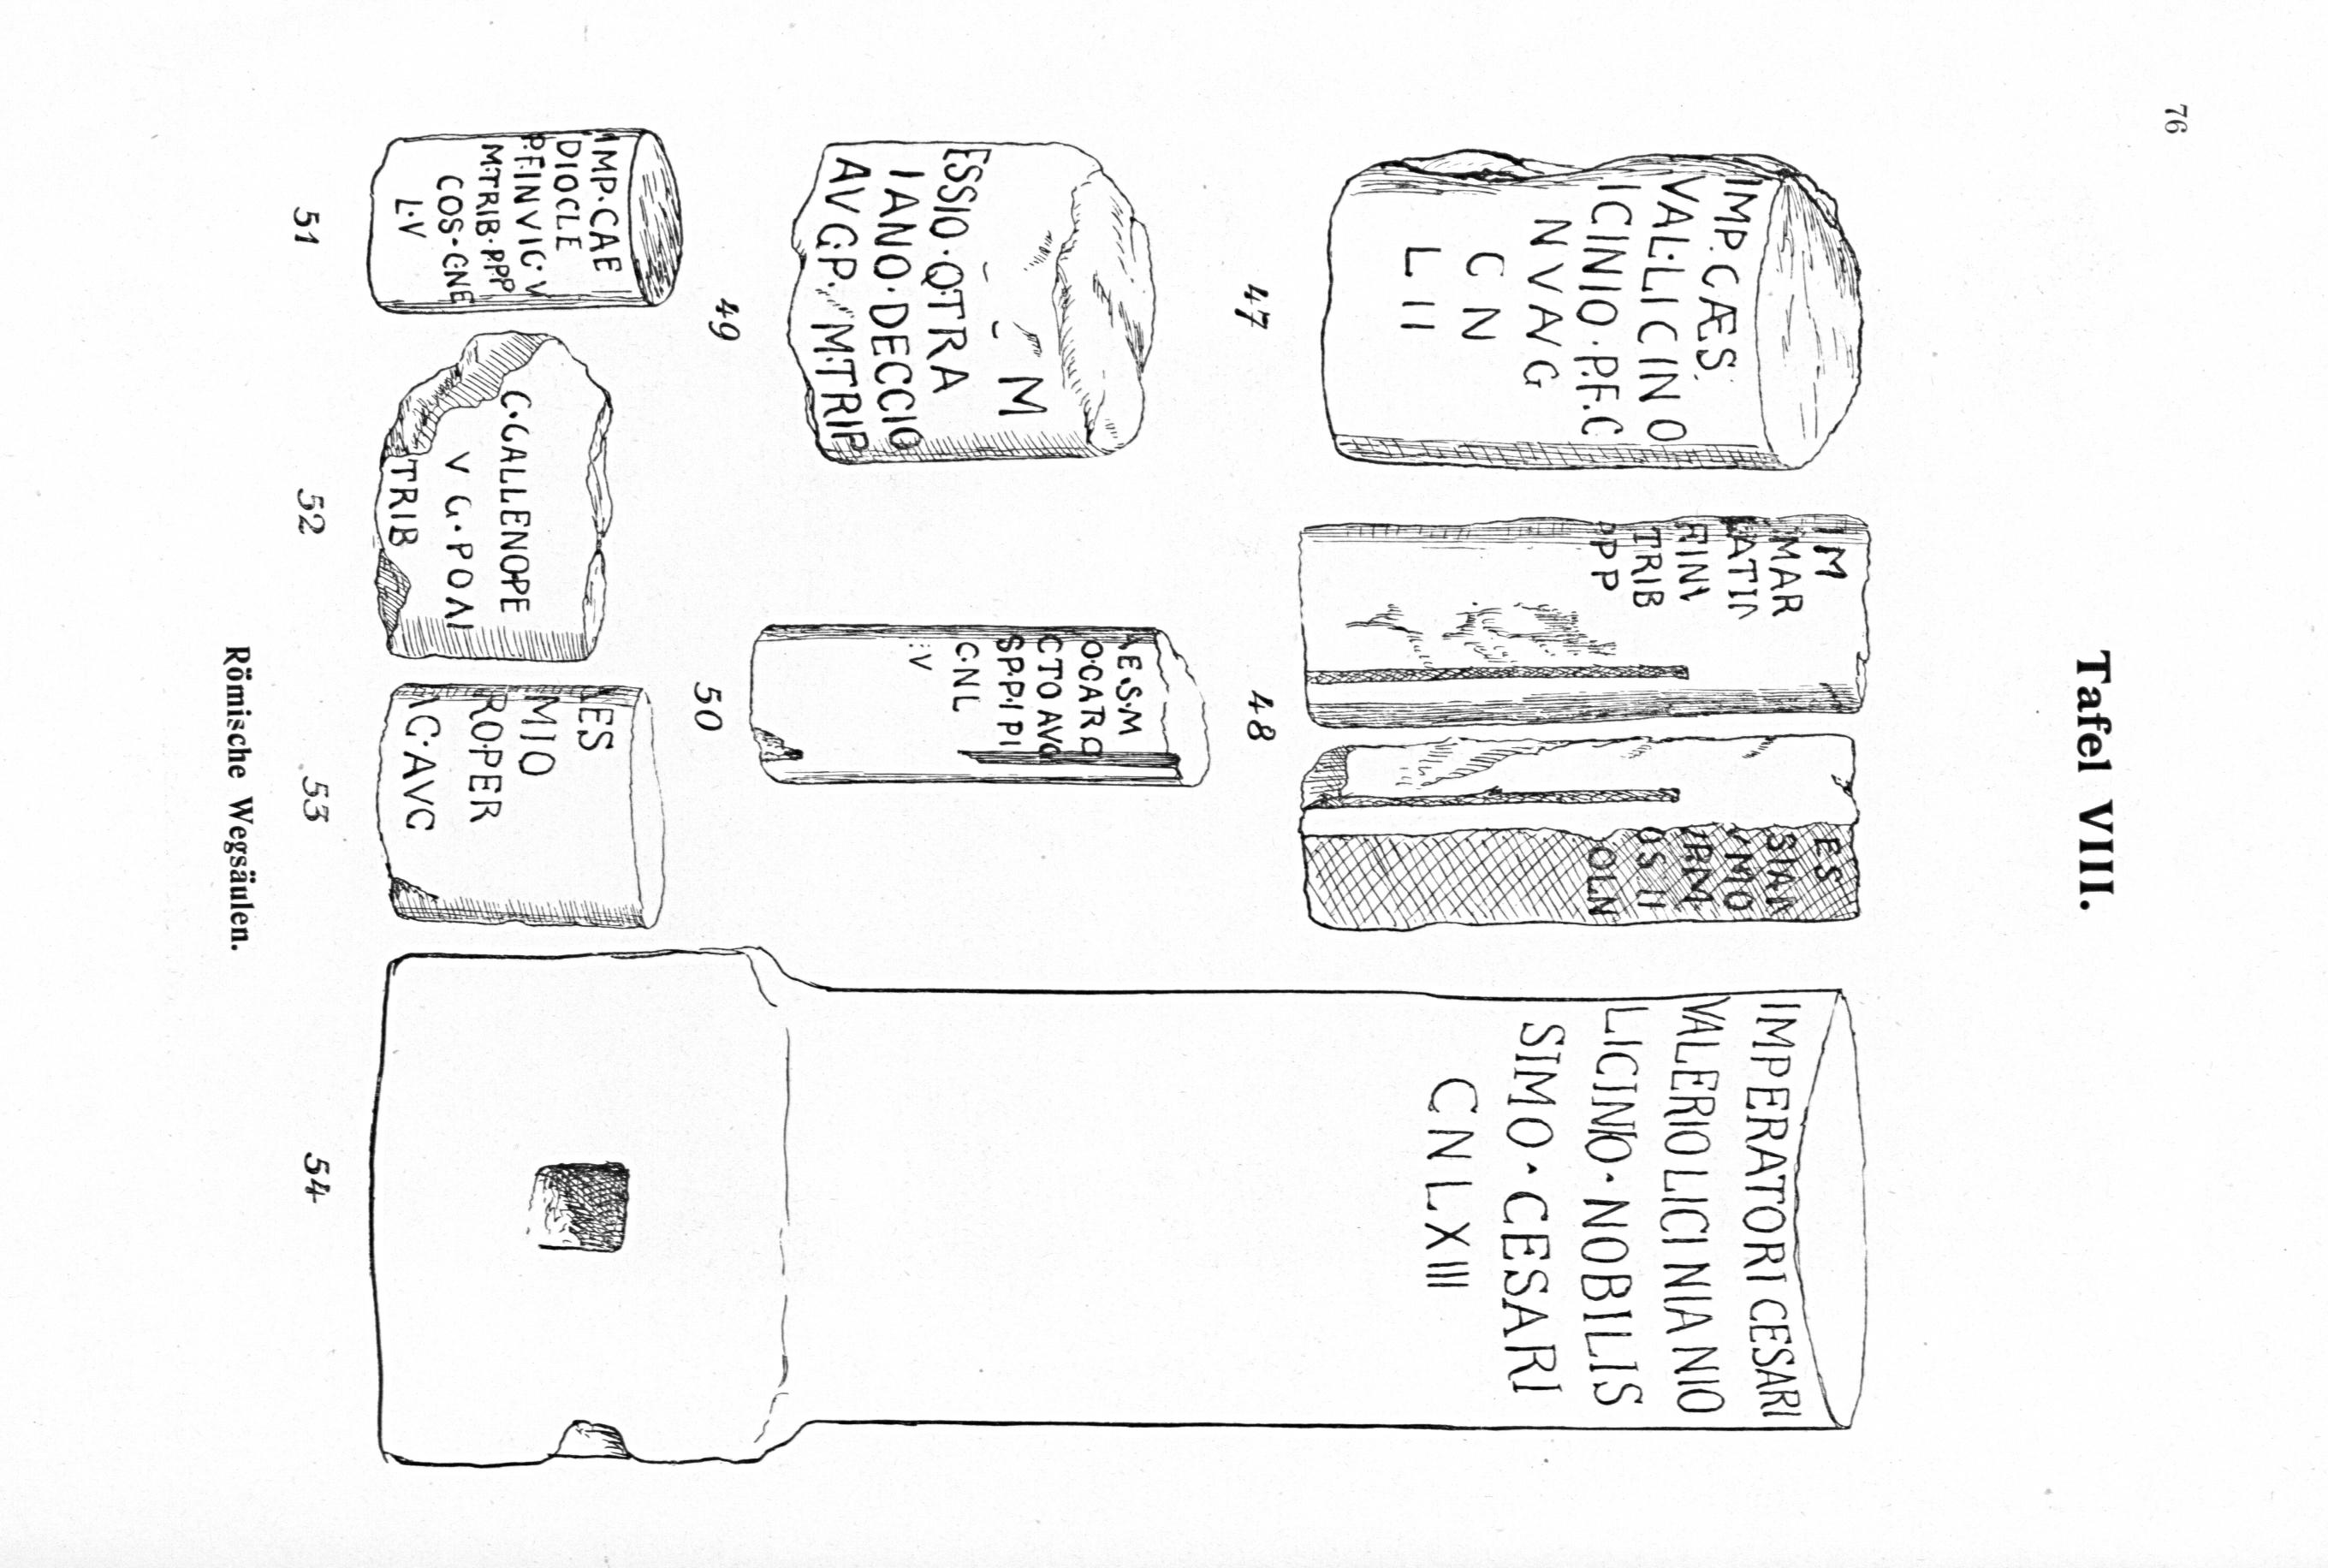 76
Tafel VIII.
IMP.CÆS.
VAL·LICINO
ICINIO·P.F.C
NVAVG
CN
LII
47
IM
MAR
ATIN
FINV
TRIB
PPP
ES
SIAN
VMO
P.P.M
OS II
OLN
48
M
ESSIO·Q·TRA
IANO·DECCIO
AVGP· M·TRIP
49
AE.S.M
O·CARO
CTO AVG
SP.P.I PI
C·NL
:V
50
IMP·CAE
DIOCLE
P.F.INVIC·V
M·TRIB·P.PP
COS·CNE
L·V
51
C·GALLENOPE
VG·POAI
TRIB
52
ES
MIO
ROPER
AC·AVG
53
IMPERATORI CESARI
VALERIOLICINIANIO
LICINIO·NOBILIS
SIMO·CESARI
CNLXIII
54
Römische Wegsäulen.